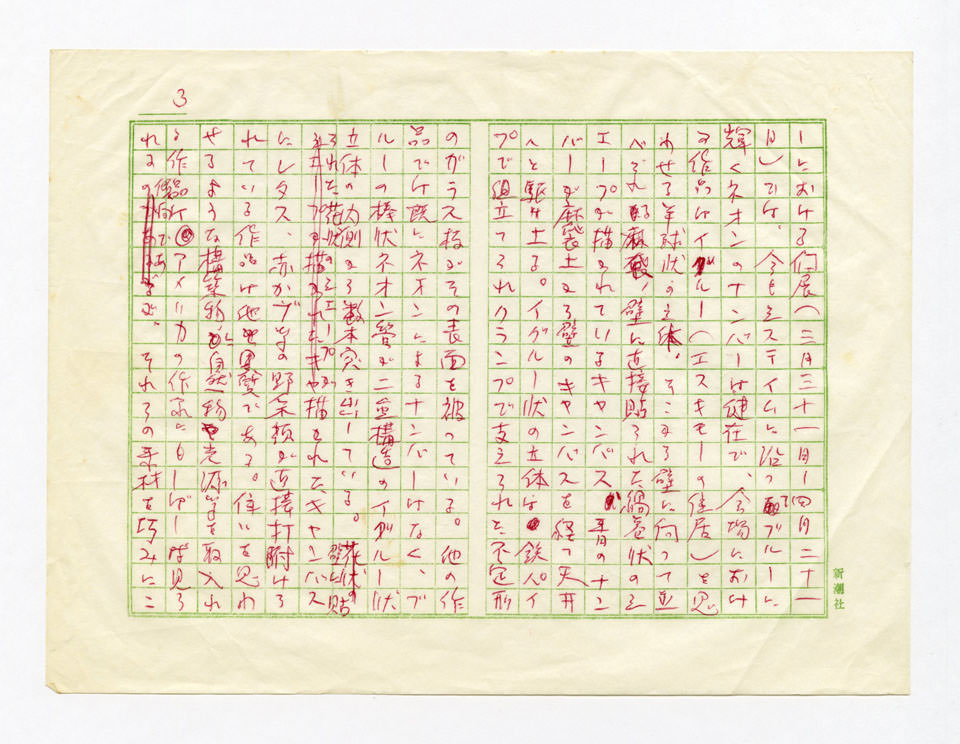 3
ーにおける個展(三月三十一日ー四月二十一
日)では、今もシステイムに沿ったブルーに
輝くネオンのナンバーは健在で、会場におけ
る作品はイグルー(エスキモーの住居)を思
わせる半球状の立体、そこから壁に向って並
べられ 壁に直接貼られた渦巻状のシ
エープが描かれているキャンバス 青のナン
バーが麻袋土から壁のキャンバスを経て天井
へと駆け上る。イグルー状の立体は 鉄パイ
プで組立てられクランプで支えられた不定形
のガラス板がその表面を被っている。他の作
品では既にネオンによるナンバーはなく、ブ
ルーの棒状ネオン管が二重構造のイグルー状
立体の内側から数本突き出している。花状の
られた キャンバス
にレタス、赤かヴ等の野菜類が直接打附けら
れている作品は他と異質である。住いを思わ
せるような構築物と自然物や光源等を取入れ
る作品はアメリカの作家にもしばしば見ら
れるのであるが、それらの素材を巧みにこ
新潮社